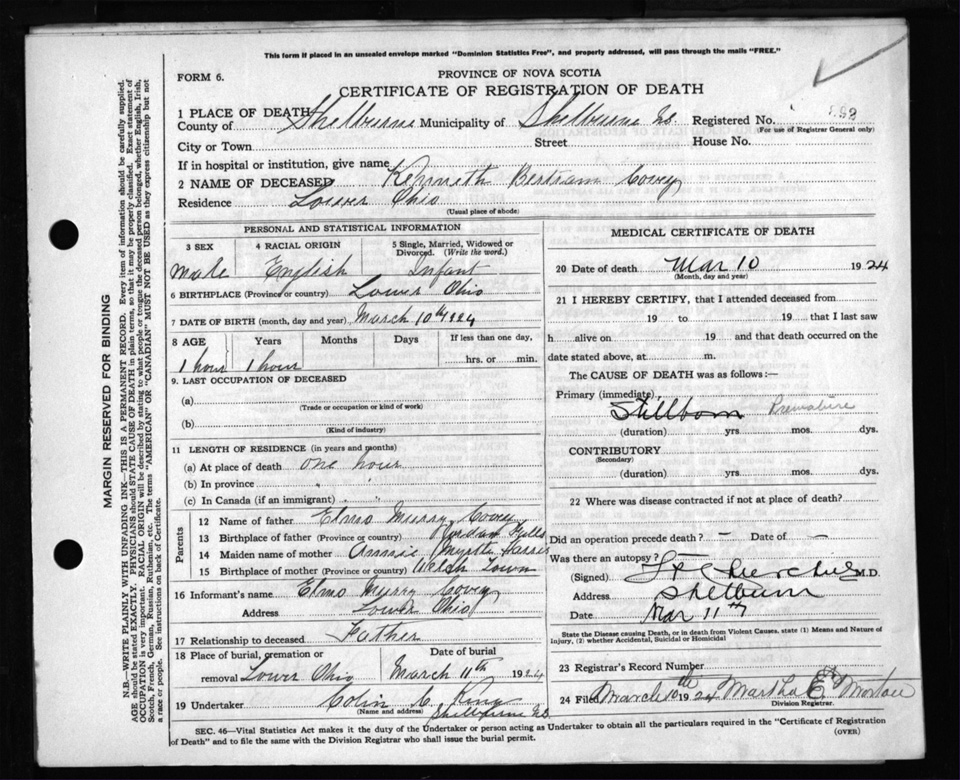 This form if placed in an unsealed envelope marked "Dominion Statistics Free", and properly addressed, will pass through the mails "FREE."
FORM 6.
PROVINCE OF NOVA SCOTIA
CERTIFICATE OF REGISTRATION OF DEATH
1 PLACE OF DEATH
County of Shelburne Municipality of Shelburne NS Registered No.
(For use of Registrar General only)
City or Town Street House No.
If in hospital or institution, give name
2 NAME OF DECEASED Kenneth Bertram Covey
Residence Lower Ohio
(Usual place of abode)
PERSONAL AND STATISTICAL INFORMATION
3 SEX 4 RACIAL ORIGIN 5 Single, Married, Widowed or Divorced. (Write the word.)
Male English Infant
6 BIRTHPLACE (Province or country) Lower Ohio
7 DATE OF BIRTH (month, day and year) March 10th 1924
8 AGE Years Months Days If less than one day,
1 hour 1 hour hrs. or min.
9. LAST OCCUPATION OF DECEASED
(a)
(Trade or occupation or kind of work)
(b)
(Kind of industry)
11 LENGTH OF RESIDENCE (in years and months)
(a) At place of death One hour
(b) In province " "
(c) In Canada (if an immigrant) " "
Parents
12 Name of father Elmo Murry Covey
13 Birthplace of father (Province or country) Jordan Falls
14 Maiden name of mother Annie Myrtle Harris
15 Birthplace of mother (Province or country) Welsh Town
16 Informant's name Elmo Murry Covey
Address Lower Ohio
17 Relationship to deceased Father
18 Place of burial, cremation or Date of burial
removal Lower Ohio March 11th 1924
19 Undertaker Colin C. King
(Name and address) Shelburne NS
MEDICAL CERTIFICATE OF DEATH
20 Date of death Mar 10 1924
(Month, day and year)
21 I HEREBY CERTIFY, that I attended deceased from
19 to 19 that I last saw
h alive on 19 and that death occurred on the
date stated above, at m.
The CAUSE OF DEATH was as follows:—
Primary (immediate)
Stillborn Premature
(duration) yrs. mos. dys.
CONTRIBUTORY
(Secondary)
(duration) yrs. mos. dys.
22 Where was disease contracted if not at place of death?
Did an operation precede death? — Date of —
Was there an autopsy?
(Signed) M.D.
Address Shelburn
Date Mar 11th
State the Disease causing Death, or in death from Violent Causes, state (1) Means and Nature of Injury, (2) whether Accidental, Suicidal or Homicidal
23 Registrar's Record Number
24 Filed March 10th 1924 Martha E Morton
Division Registrar.
SEC. 46—Vital Statistics Act makes it the duty of the Undertaker or person acting as Undertaker to obtain all the particulars required in the "Certificate of Registration
of Death" and to file the same with the Division Registrar who shall issue the burial permit.
(OVER)
MARGIN RESERVED FOR BINDING
N.B.—WRITE PLAINLY WITH UNFADING INK—THIS IS A PERMANENT RECORD. Every item of information should be carefully supplied.
AGE should be stated EXACTLY. PHYSICIANS should STATE CAUSE OF DEATH in plain terms, so that it may be properly classified. Exact statement of
OCCUPATION is very important. RACIAL ORIGIN will be described by stating to what people or tongue the deceased person belonged, whether English, Irish,
Scotch, French, German, Russian, Ruthenian, etc. The terms "AMERICAN" OR "CANADIAN" MUST NOT BE USED as they express citizenship but not
a race or people. See instructions on back of Certificate.